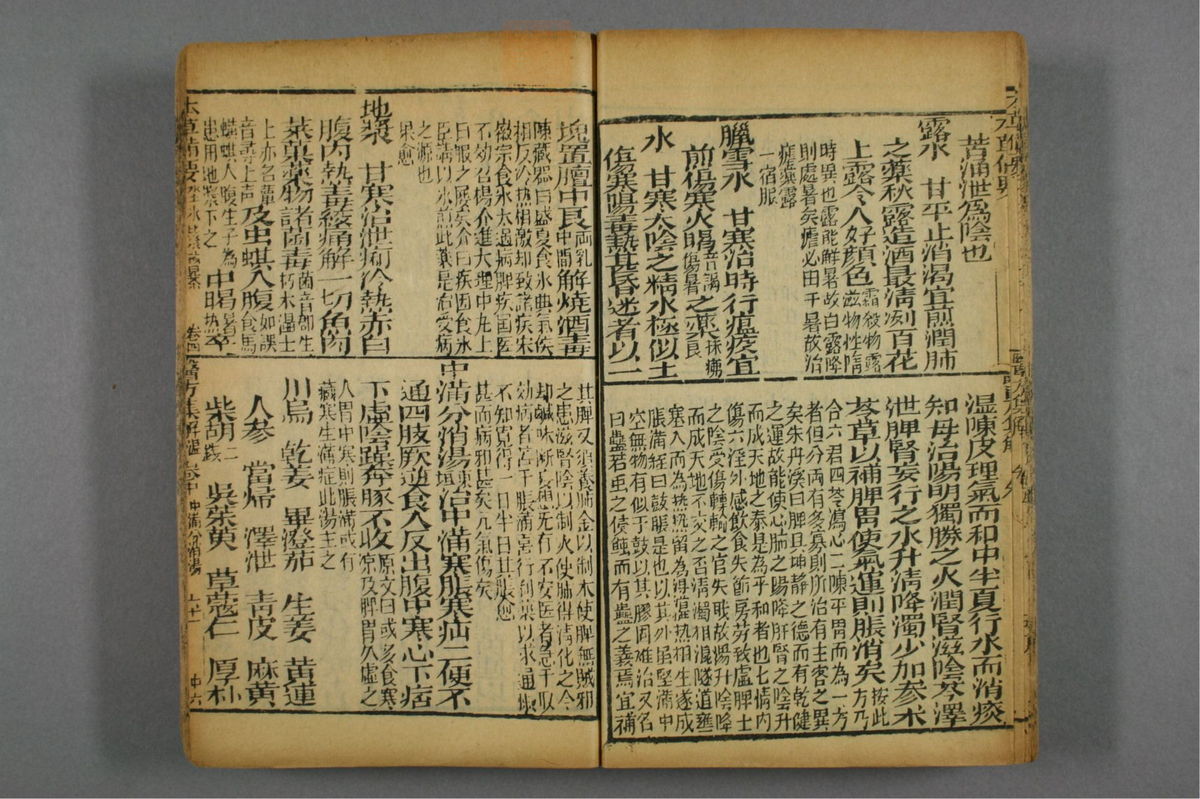 苦涌泄為陰也
露水　甘平止消渴宜煎潤肺
之藥秋露造酒最清冽百花
上露令人好顏色霜殺物露滋物性隨
時異也露能解暑故白露降
則處暑矣瘧必由于暑故治
瘧藥露
一宿服
臘雪水　甘寒治時行瘟疫宜
煎傷寒火暍音謁傷暑之藥抹痱良
水　甘寒太陰之精水極似土
傷寒陽毒熱甚昏迷者以一
塊置膻中良兩乳中間解燒酒毒
陳藏器曰盛夏食氷與氣候
相反冷熱相激却致諸疾宋
徽宗食氷太過病脾疾國医
不効召楊介進大理中丸上
曰服之屢矣介曰疾因食氷
臣請以氷煎此藥是治受病
之源也
果愈
地漿　甘寒治泄痢冷熱赤白
腹內熱毒絞痛解一切魚肉
菜菓藥物諸菌毒菌音郡生朽木溼土
上亦名蕈音尋上声及虫蜞入腹如誤食馬
蝗蜞入腹生子為患用地漿下之中暍暑熱卒
本草備要　卷四
湿陳皮理氣而和中半夏行水而消痰
知母治陽明獨勝之火潤腎滋陰苓澤
泄脾腎妄行之水升清降濁少加参术
苓草以補脾胃使氣運則脹消矣按此方乃
合六君四苓瀉心二陳平胃而為一方
者但分両有多寡則所治有主客之異
矣朱丹溪曰脾具坤静之德而有乾健
之運故能使心肺之陽降肝腎之陰升
而成天地之泰是為平和者也七情內
傷六淫外感飲食失節房劳致虛脾土
之陰受傷轉輸之官失职故陽升陰降
而成天地不交之否清濁相混隧道壅
塞入而為热热留為湿湿热相生遂成
脹滿經曰鼓脹是也以其外虽堅滿中
空無物有似于鼓以其膠固难治又名
曰蠱若虫之侵蝕而有蠱之義焉宜補
其脾又須養肺金以制木使脾無賊邪
之患滋腎陰以制火使肺得清化之令
却鹹味断妄想無有不安医者急于取
効病者苦于脹滿喜行利藥以求通快
不知寬得一日半日其脹愈
甚而病邪甚矣元氣傷矣
中滿分消湯治中滿寒脹寒疝二便不
通四肢厥逆食入反出腹中寒心下痞
下虛陰躁奔豚不收原文曰或多食寒凉及脾胃久虛之
人胃中寒則脹滿或有
藏寒生滿症此湯主之
川烏　乾姜　畢澄茄　生姜　黃連
人参　當歸　澤泄　青皮　麻黃
柴胡二錢　吳茱萸　草蔻仁　厚朴
醫方集解　卷中　中滿分消湯